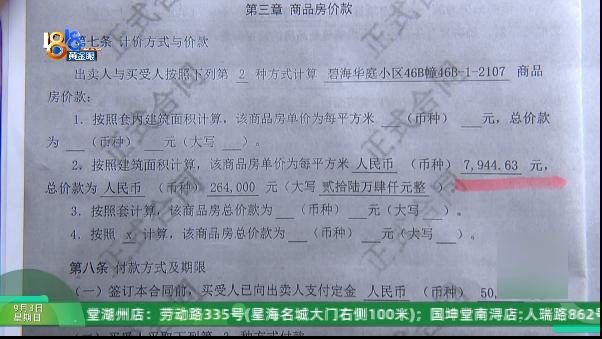 第三章 商品房价款
1818
黄金眼
第七条 计价方式与价款
出卖人与买受人按照下列第 2 种方式计算 碧海华庭小区46B幢46B-1-2107 商品
房价款：
1. 按照套内建筑面积计算，该商品房单价为每平方米 （币种） 元，总价款
为 （币种） 元（大写 ）。
2. 按照建筑面积计算，该商品房单价为每平方米 人民币 （币种） 7,944.63 元，
总价款为 人民币 （币种） 264,000 元（大写 贰拾陆万肆仟元整 ）。
3. 按照套计算，该商品房总价款为 （币种） 元（大写 ）。
4. 按照 x 计算，该商品房总价款为 （币种） 元（大写 ）。
第八条 付款方式及期限
（一）签订本合同前，买受人已向出卖人支付定金 人民币 （币种） 50,
9月3日
星期日
堂湖州店：劳动路335号(星海名城大门右侧100米)；国坤堂南浔店:人瑞路862号
正式合同
正式合同
正式合同
正式合同